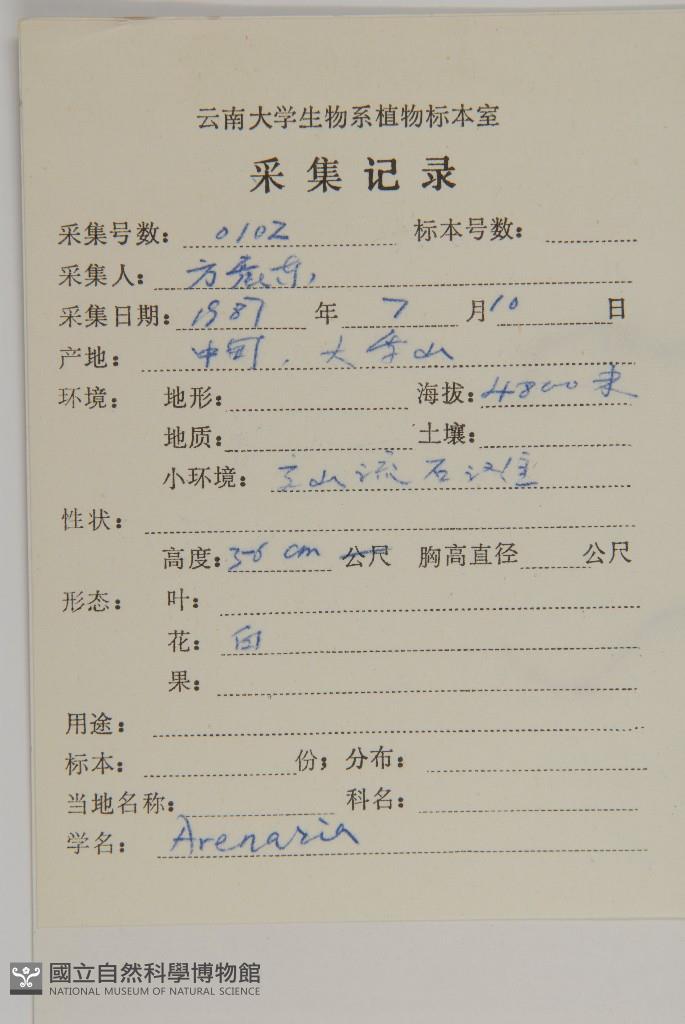 云南大学生物系植物标本室
采集记录
采集号数: 0102 标本号数:
采集人: 方震东,
采集日期: 1987 年 7 月 10 日
产地: 中甸, 大雪山
环境: 地形: 海拔: 4800 米
地质: 土壤:
小环境: 高山流石
性状:
高度: 3-6 cm 公尺 胸高直径 公尺
形态: 叶:
花: 白
果:
用途:
标本: 份; 分布:
当地名称: 科名:
学名: Arenaria
國立自然科學博物館
NATIONAL MUSEUM OF NATURAL SCIENCE